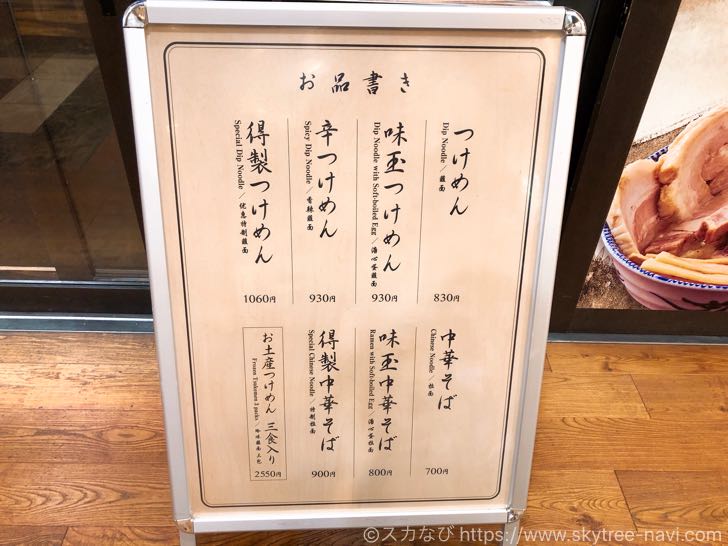 お品書き
つけめん
Dip Noodle／蘸面
830円
味玉つけめん
Dip Noodle with Soft-boiled Egg／溏心蛋蘸面
930円
辛つけめん
Spicy Dip Noodle／香辣蘸面
930円
得製つけめん
Special Dip Noodle／优惠特制蘸面
1060円
中華そば
Chinese Noodle／拉面
700円
味玉中華そば
Ramen with Soft-boiled Egg／溏心蛋拉面
800円
得製中華そば
Special Chinese Noodle／特制拉面
900円
お土産つけめん 三食入り
Frozen Tsukemen 3 packs／
2550円
©スカなび https://www.skytree-navi.com